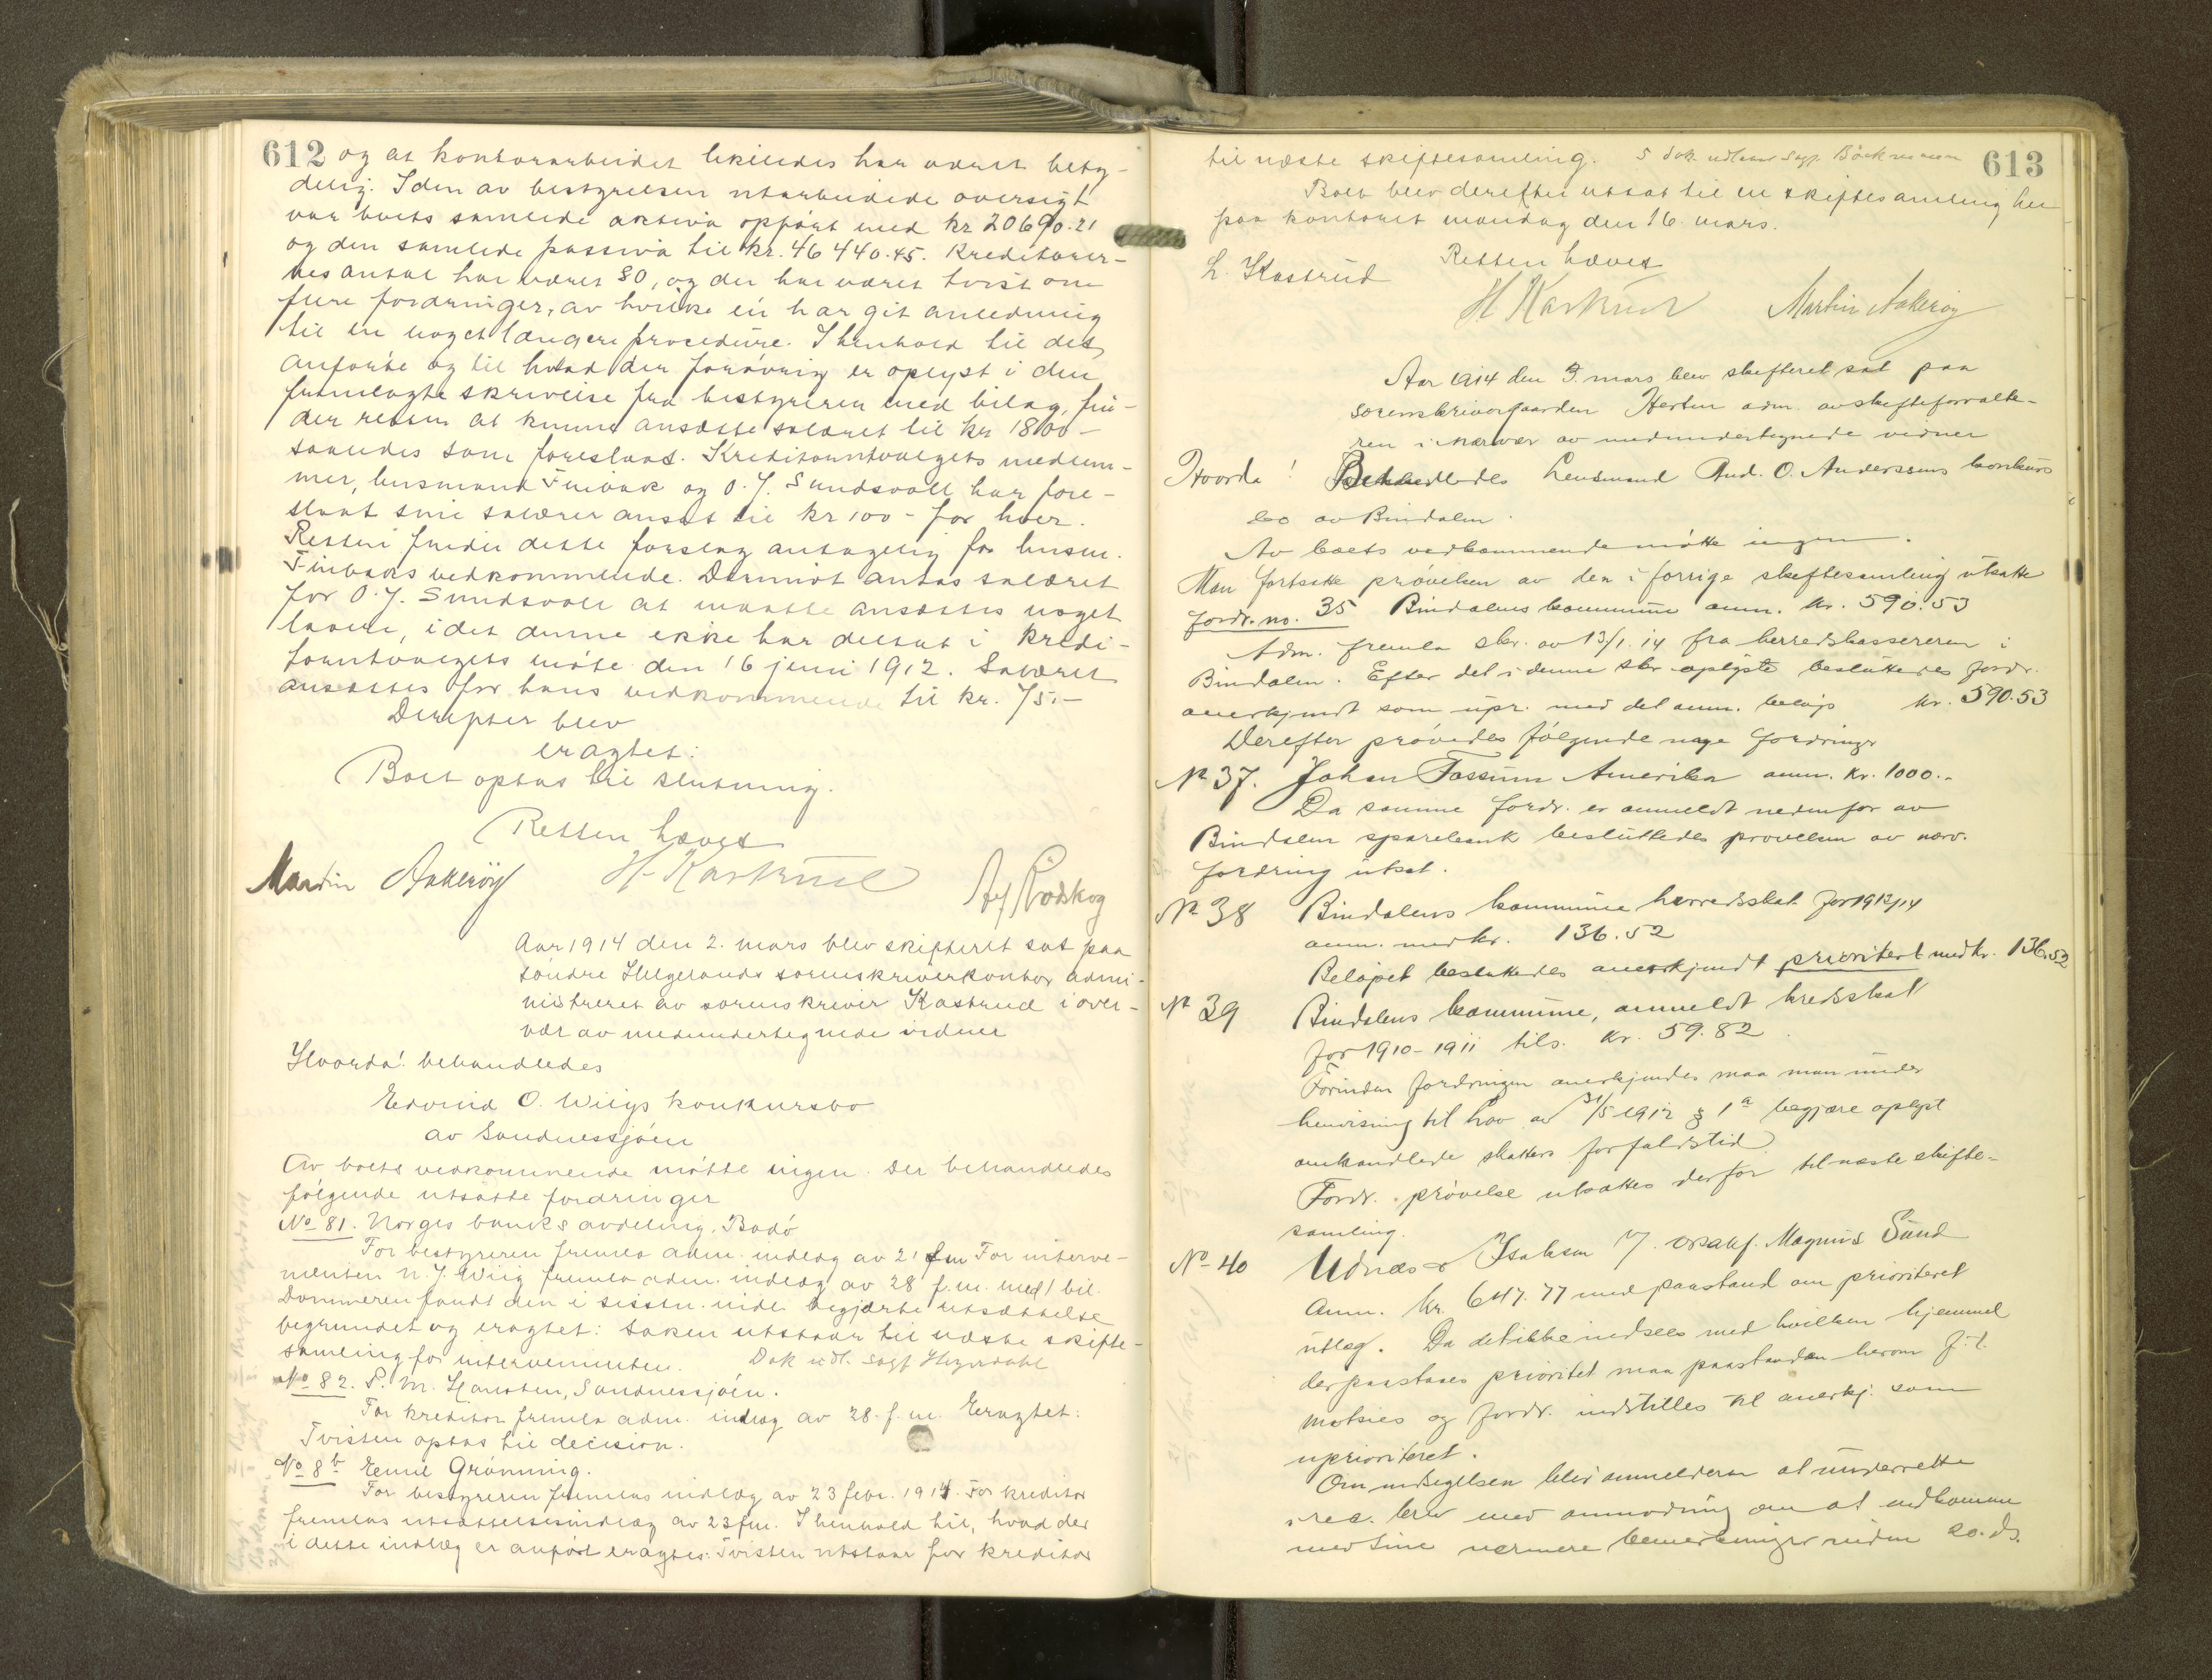 612 og at kontorarbeidet likeledes har været bety-
delig. I den av bestyrelsen utarbeidede oversigt
var boets samlede aktiva opført med kr 20690.21
og den samlede passiva til kr. 46440.45. Kreditorer-
nes antal har været 80, og der har været tvist om
flere fordringer, av hvilke én har git anledning
til en noget længere procedure. I henhold til det
anførte og til hvad der forøvrig er oplyst i den
fremlagte skrivelse fra bestyreren med bilag, fin-
der retten at kunne ansætte salæret til kr 1800 -
saaledes som foreslaat. Kreditorutvalgets medlem-
mer, lensmand Finbak og O. J. Sundsvoll har fore-
slaat sine salærer ansat til kr 100 - for hver.
Retten finder dette forslag antagelig for lensm.
Finbaks vedkommende. Derimot antas salæret
for O. J. Sundsvoll at maatte ansættes noget
lavere, idet denne ikke har deltat i kredi-
torutvalgets møte den 16 juni 1912. Salæret
ansættes for hans vedkommende til kr. 75.-
Derefter blev
eragtet:
Boet optas til slutning.
Retten hævet
Martin Aakerøy H. Kastrud Rødskog
Aar 1914 den 2. mars blev skifteret sat paa
søndre Helgelands sorenskriverkontor admi-
nistreret av sorenskriver Kastrud i over-
vær av medundertegnede vidner
Hvorda! behandledes
Edvind O. Wiigs konkursbo
av Sandnessjøen
Av boets vedkommende møtte ingen. Der behandledes
følgende utsatte fordringer
No 81. Norges banks avdeling, Bodø
For bestyreren fremla adm. indlæg av 21 f.m. For interve-
nienten N. J. Wiig fremla adm. indlæg av 28 f.m. med 1 bil.
Dommeren fandt den i sisstn. indl. begjærte utsættelse
begrundet og eragtet: Saken utstaar til næste skifte-
samling for intervenienten. Dok utl. sagf.
No 82. P. M. Hansten, Sandnessjøen.
For kreditor fremla adm. indlæg av 28. f.m. Eragtet:
Tvisten optas til decision.
No 8b Emil Grønning.
For bestyreren fremlas indlæg av 23 febr. 1914. For kreditor
fremlas utsættelsesindlæg av 23 f.m. I henhold til, hvad der
i dette indlæg er anført eragtes: Tvisten utstaar for kreditor
til næste skiftesamling. 5 dok. utlaant sagf. Bøckmann 613
Boet blev derefter utsat til en skiftesamling her
paa kontoret mandag den 16. mars.
Retten hævet
L. Kastrud
H Kastrud Martin Aakerøy
Aar 1914 den 3. mars blev skifteret sat paa
sorenskrivergaarden Horten adm. av skifteforvalte-
ren i nærvær av medundertegnede vidner
Hvorda! Behandledes Lensmand And. O. Anderssens konkurs
bo av Bindalen.
Av boets vedkommende møtte ingen.
Man fortsatte prøvelsen av den i forrige skiftesamling utsatte
fordr. no. 35 Bindalens kommune anm. kr. 590.53
Adm. fremla skr. av 13/1.14 fra herredskassereren i
Bindalen. Efter det i denne skr. oplyste besluttedes fordr.
anerkjendt som upr. med det anm. beløp kr. 590.53
Derefter prøvedes følgende nye fordringer
No 37. Johan Fossum Amerika anm. kr. 1000.-
Da samme fordr. er anmeldt nedenfor av
Bindalen sparebank besluttedes prøvelsen av nærv.
fordring utsat.
No 38 Bindalens kommune herredsskat for 1913/14
anm. med kr. 136.52
Beløpet besluttedes anerkjendt prioritert med kr. 136.52
No 39 Bindalens kommune, anmeldt kredsskat
for 1910-1911 tils. kr. 59.82
Forinden fordringen anerkjendes maa man under
henvisning til lov av 31/5 1912 § 1a begjære oplyst
omhandlede skatters forfaldstid
Fordr. prøvelse utsattes derfor til næste skifte-
samling.
No 40 Udnæs & Isaksen v/ o.r.sakf. Magnus Sund
anm. kr. 647.77 med paastand om prioriteret
utlæg. Da det ikke indsees med hvilken hjemmel
der paastaaes prioritet maa paastanden herom f.t.
motsies og fordr. indstilles til anerkj. som
uprioriteret.
Om motsigelsen blir anmelderne at underrette
i rec. brev med anmodning om at indkomme
med sine nærmere bemerkninger inden 20. ds.